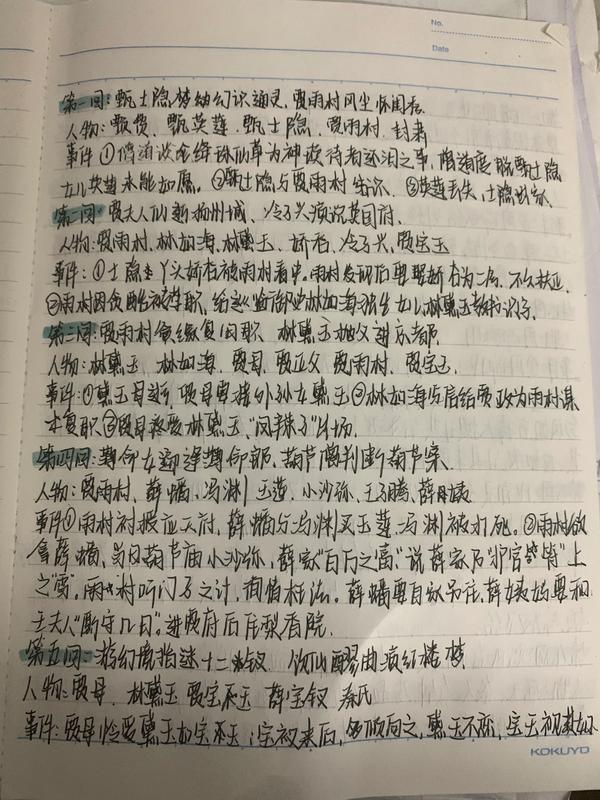 No.
Date
第一回:甄士隐梦幻识通灵,贾雨村风尘怀闺秀
人物:甄费、甄英莲、甄士隐、贾雨村、封肃
事件①僧道谈论绛珠仙草为神瑛侍者还泪之事,僧道度脱甄士隐
女儿英莲未能如愿。②甄士隐与贾雨村结识、③英莲丢失,士隐出家
第二回:贾夫人仙逝扬州城、冷子兴演说荣国府.
人物:贾雨村、林如海、林黛玉、娇杏、冷子兴、贾宝玉
事件:①士隐丫头娇杏被雨村看中。雨村发迹后娶娇杏为二房,不久扶正
②雨村因贪酷被革职,给巡盐御史林如海独生女儿林黛玉教书识字
第三回:贾雨村夤缘复旧职 林黛玉抛父进京都.
人物:林黛玉、林如海、贾母、贾政 贾雨村、贾宝玉.
事件:①黛玉母逝,贾母要接外孙女黛玉②林如海写信给贾政为雨村谋
求复职③贾母疼爱林黛玉、“凤辣子”出场.
第四回:薄命女邂逅薄命郎、葫芦僧判断葫芦案.
人物:贾雨村、薛蟠、冯渊、英莲、小沙弥、王子腾、薛姨妈
事件①雨村补授应天府,薛蟠与冯渊买英莲、冯渊被打死。②雨村欲
拿薛蟠,葫芦庙小沙弥,薛家“百万之富”说薛家乃“护官符”上
之“雪”。雨村听门子之计,徇情枉法。薛蟠要自家另住,薛姨妈要和
王夫人“厮守几日”。进贾府后住梨香院.
第五回:游幻境指迷十二钗 饮仙醪曲演红楼梦
人物:贾母、林黛玉 贾宝玉 薛宝钗 秦氏
事件:贾母怜爱黛玉如宝玉;宝钗来后,多倾向之,黛玉不忿,宝玉视
KOKUYO